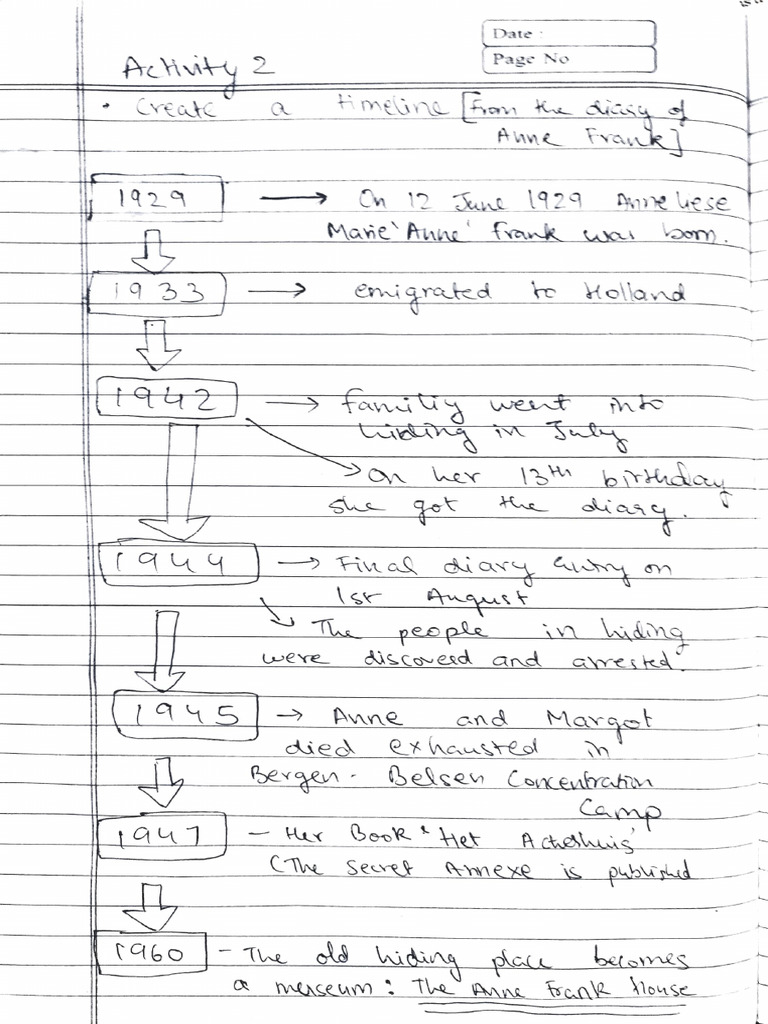 Date :
Page No
Activity 2
• Create a timeline [from the diary of
Anne Frank]
1929 → On 12 June 1929 Anneliese
Marie 'Anne' Frank was born.
1933 → emigrated to Holland
1942 → familiy went into
hiding in July
→ On her 13th birthday
she got the diary.
1944 → Final diary entry on
1st August
→ The people in hiding
were discoverd and arrested.
1945 → Anne and Margot
died exhausted in
Bergen - Belsen Concentration
Camp
1947 – Her Book 'Het Acterhuis'
(The Secret Annexe is published
1960 – The old hiding place becomes
a museum : The Anne Frank House